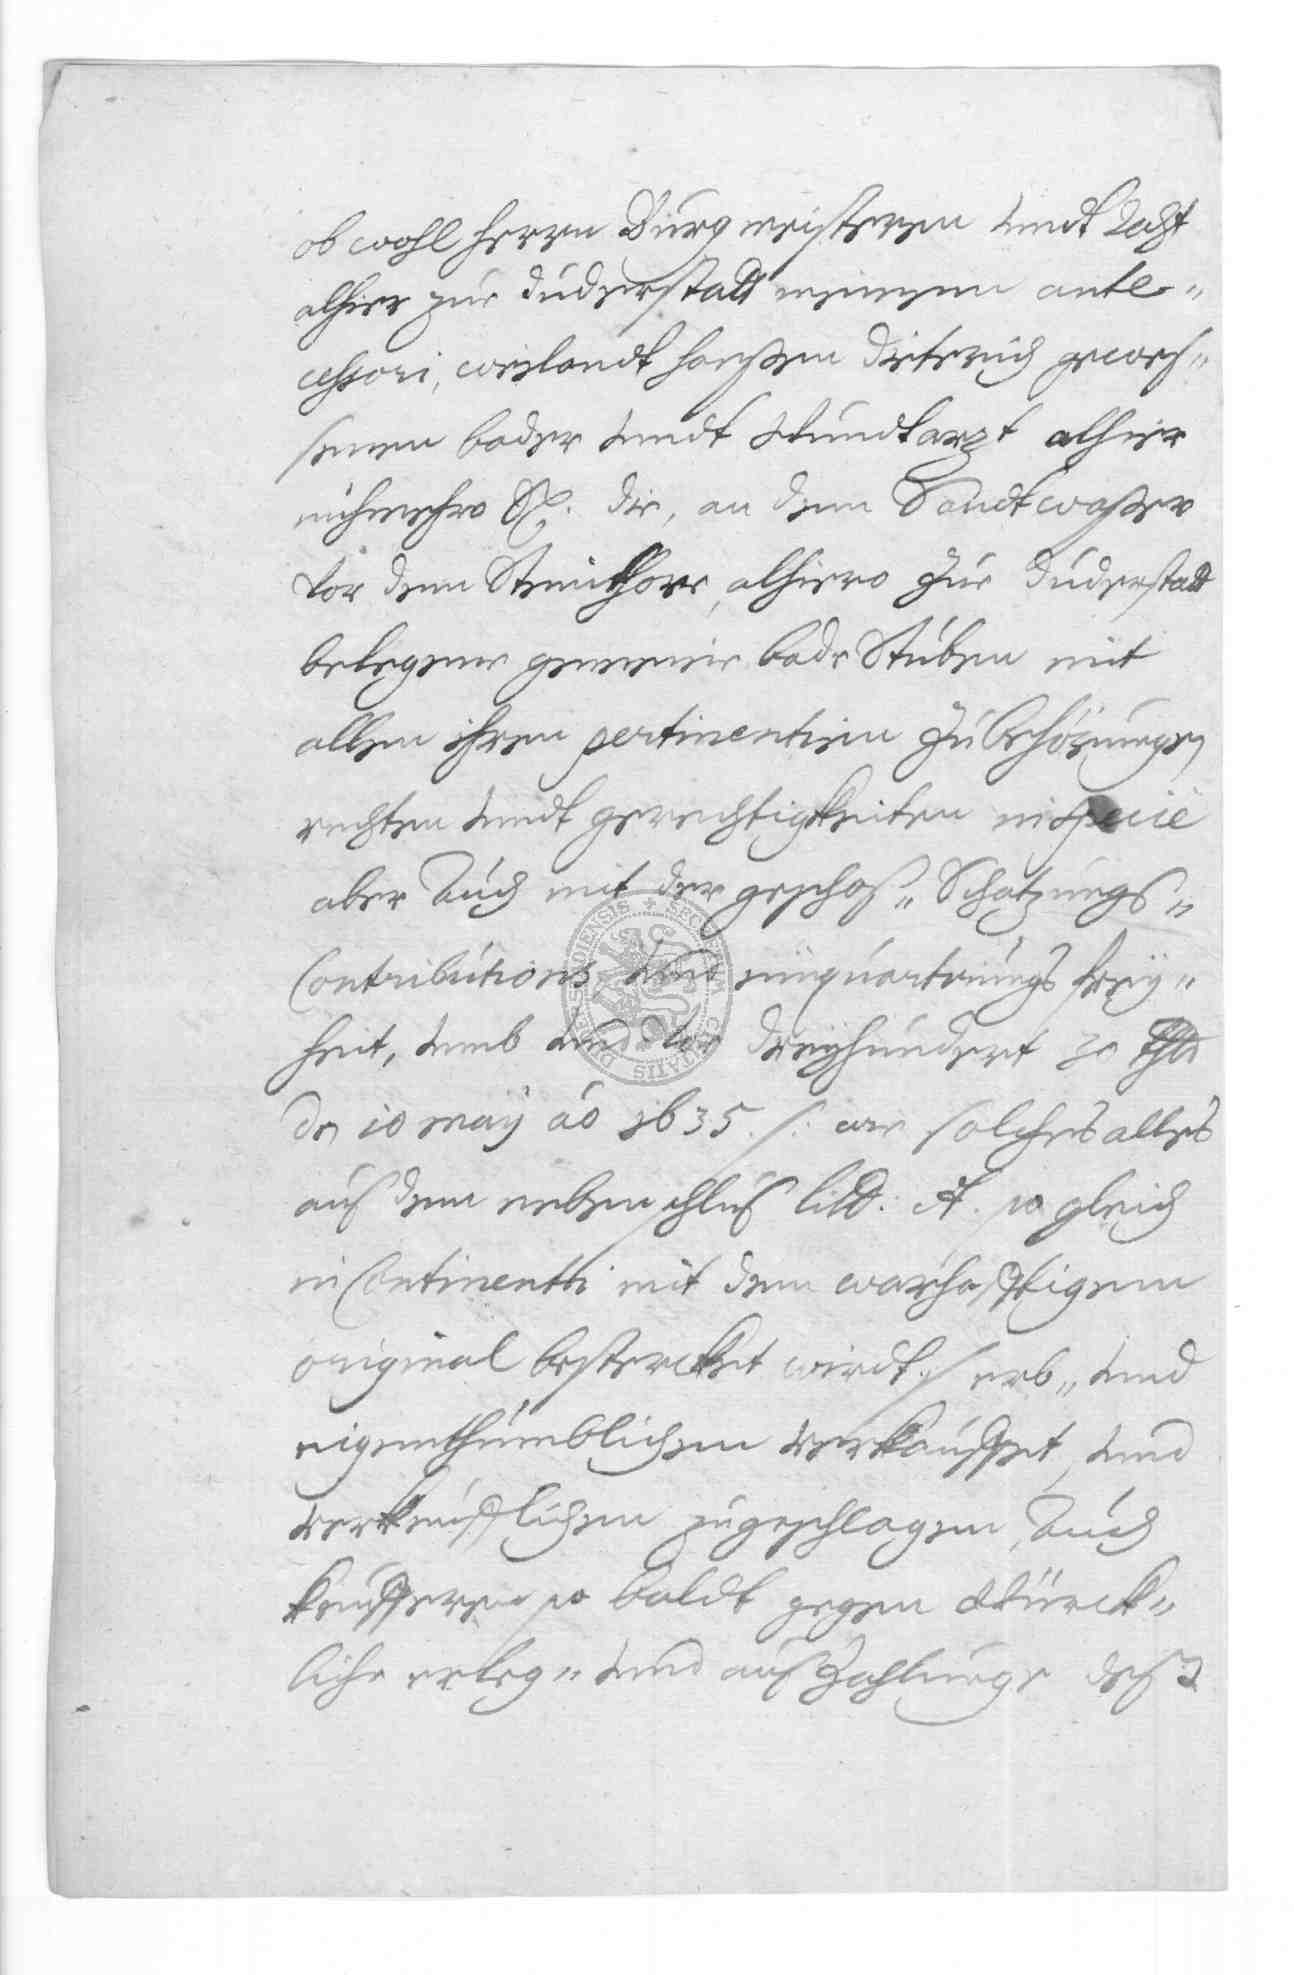 ob wohl herren Bürgmeisteren undt Raht
alhier zue Duderstadt meinem ante„
cessori, weilandt Hanßen Dieterich gewes„
senen bader undt Wundtarzt alhier
nuhmehro S. die, an dem Sandtwaßer
vor dem Steinthore, alhiero zue Duderstadt
belegene gemeine bade Stüben mit
allen ihren pertinentien Zubehörungen
rechten undt gerechtigkeiten in specie
aber auch mit der geschoß„ Schatzungs„
Contributions und einquartirungs frey„
heit, umb und vor dreyhundert 30 thlr
den 10 maÿ ao 1635. /: wie solches alles
auß dem nebenschluß litt: A. so gleich
in Continenti mit dem warhafftigem
original bestercket wirdt :/ erb„ und
eigenthümblichen verkauffet, und
verkeufflichen zugeschlagen, auch
keufferen so baldt gegen würck„
liche erleg„ und auß Zahlunge deß
SECRETUM CIVITATIS DUDERSTADIENSIS